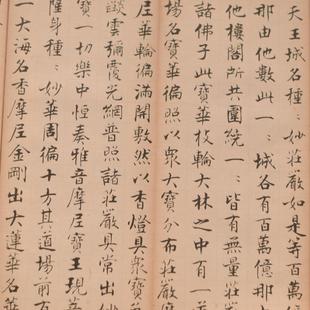 天王城名種〻妙莊嚴如是等百萬億
那由他數此一〻城各有百萬億那由
他樓閣所共圍繞一〻皆有無量莊嚴
諸佛子此寶華枝輪大林之中有一道
場名寶華徧照以衆大寶分布莊嚴摩
尼華輪徧滿開敷然以香燈具衆寶
談雲彌覆光網普照諸莊嚴具常出妙
寶一切樂中恒奏雅音摩尼寶王現菩
薩身種〻妙華周徧十方其道場前
一大海名香摩尼金剛出大蓮華名華